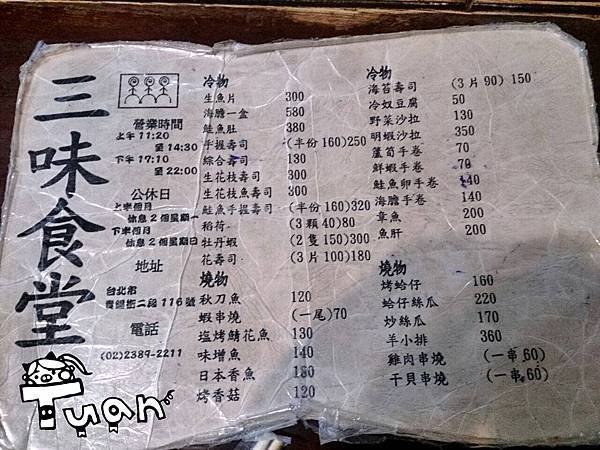 三味食堂
營業時間
上午11:20
至14:30
下午17:10
至22:00
公休日
上半個月
休息2個星期一
下半個月
休息2個星期日
地址
台北市
街二段116號
電話
(02)2389-2211
冷物
生魚片 300
海膽一盒 580
鮭魚肚 380
手握壽司 (半份160)250
綜合壽司 130
生花枝壽司 300
生花枝魚壽司 300
鮭魚手握壽司 (半份160)320
稻荷 (3顆40)80
牡丹蝦 (2隻150)300
花壽司 (3片100)180
燒物
秋刀魚 120
蝦串燒 (一尾)70
塩烤鯖花魚 130
味增魚 140
日本香魚 180
烤香菇 120
冷物
海苔壽司 (3片90) 150
冷奴豆腐 50
野菜沙拉 130
明蝦沙拉 350
蘆筍手卷 70
鮮蝦手卷 70
鮭魚卵手卷 140
海膽手卷 140
章魚 200
魚肝 200
燒物
烤蛤仔 160
蛤仔絲瓜 220
炒絲瓜 170
羊小排 360
雞肉串燒 (一串60)
干貝串燒 (一串60)
Tuan